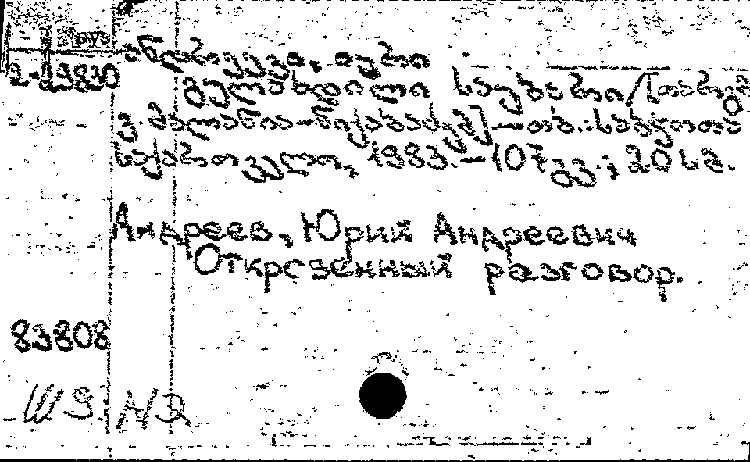 Груз
2-23830 ანდრეევი, იური
გულახდილი საუბარი/[თარგმ.
გ. მალანია-ნიკაბაძემ]—თბ.: საბჭოთა
საქართველო, 1983.—107გვ.; 20 სმ.
Андреев, Юрий Андреевич
Откровенный разговор.
83808
Ш9.